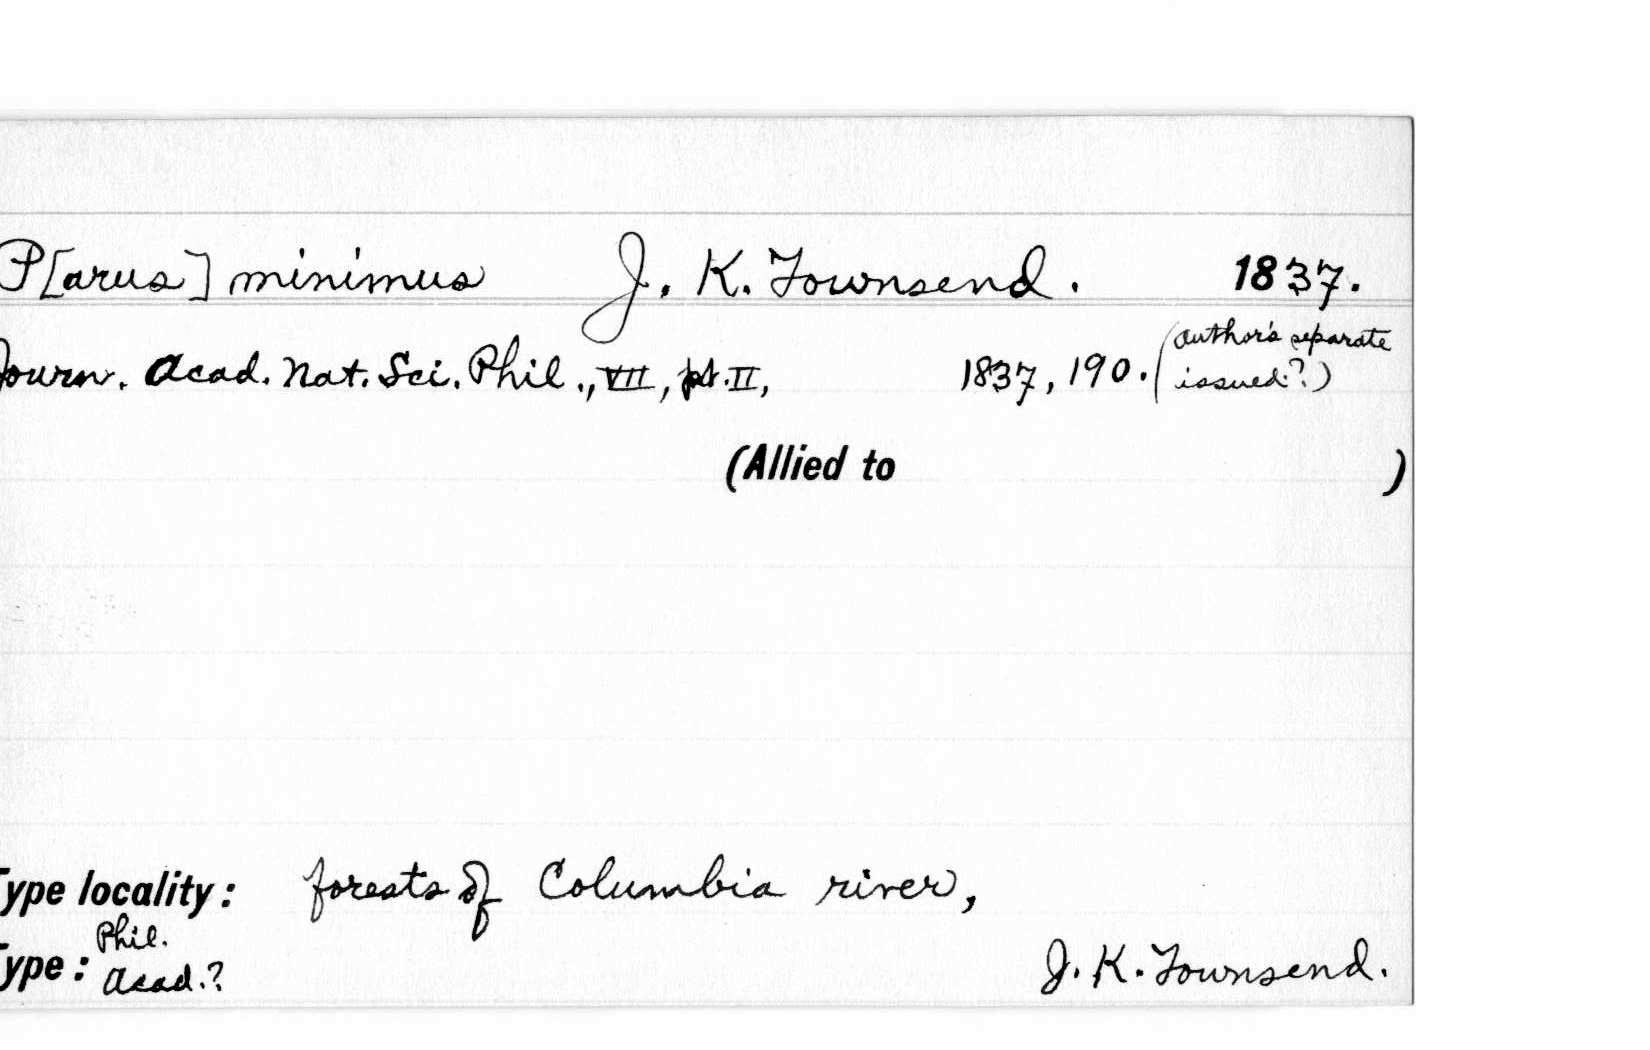 P[arus] minimus J. K. Townsend. 1837.
Journ. Acad. Nat. Sci. Phil., VII, pt. II, 1837, 190. (author's separate
issued?)
(Allied to )
Type locality: forests of Columbia river,
Phil.
Type: Acad.? J. K. Townsend.